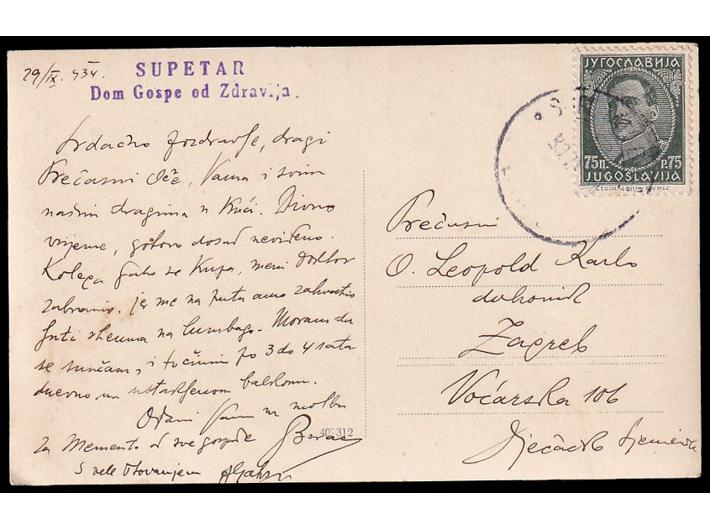 29/IX. 934.
SUPETAR
Dom Gospe od Zdravlja.
Srdačno pozdravlje, dragi
Prečasni Oče, Vama i svim
našim dragima u kući. Divno
vrijeme, gotovo dosad neviđeno.
Kolega Gato se kupa, meni doktor
zabranio. Je me na putu amo zahvatio
ljuti rheuma na lumbago. Moram da
se sunčam, i to činim po 3 do 4 sata
dnevno na ustakljenom balkonu.
Odani Vam uz molbu
za Memento od sve gospode
S veleštovanjem
40-312
ЈУГОСЛАВИЈА
75п. P.75
JUGOSLAVIJA
Prečasni
O. Leopold Karlo
duhovnik
Zagreb
Voćarska 106
Dječačko sjemenište